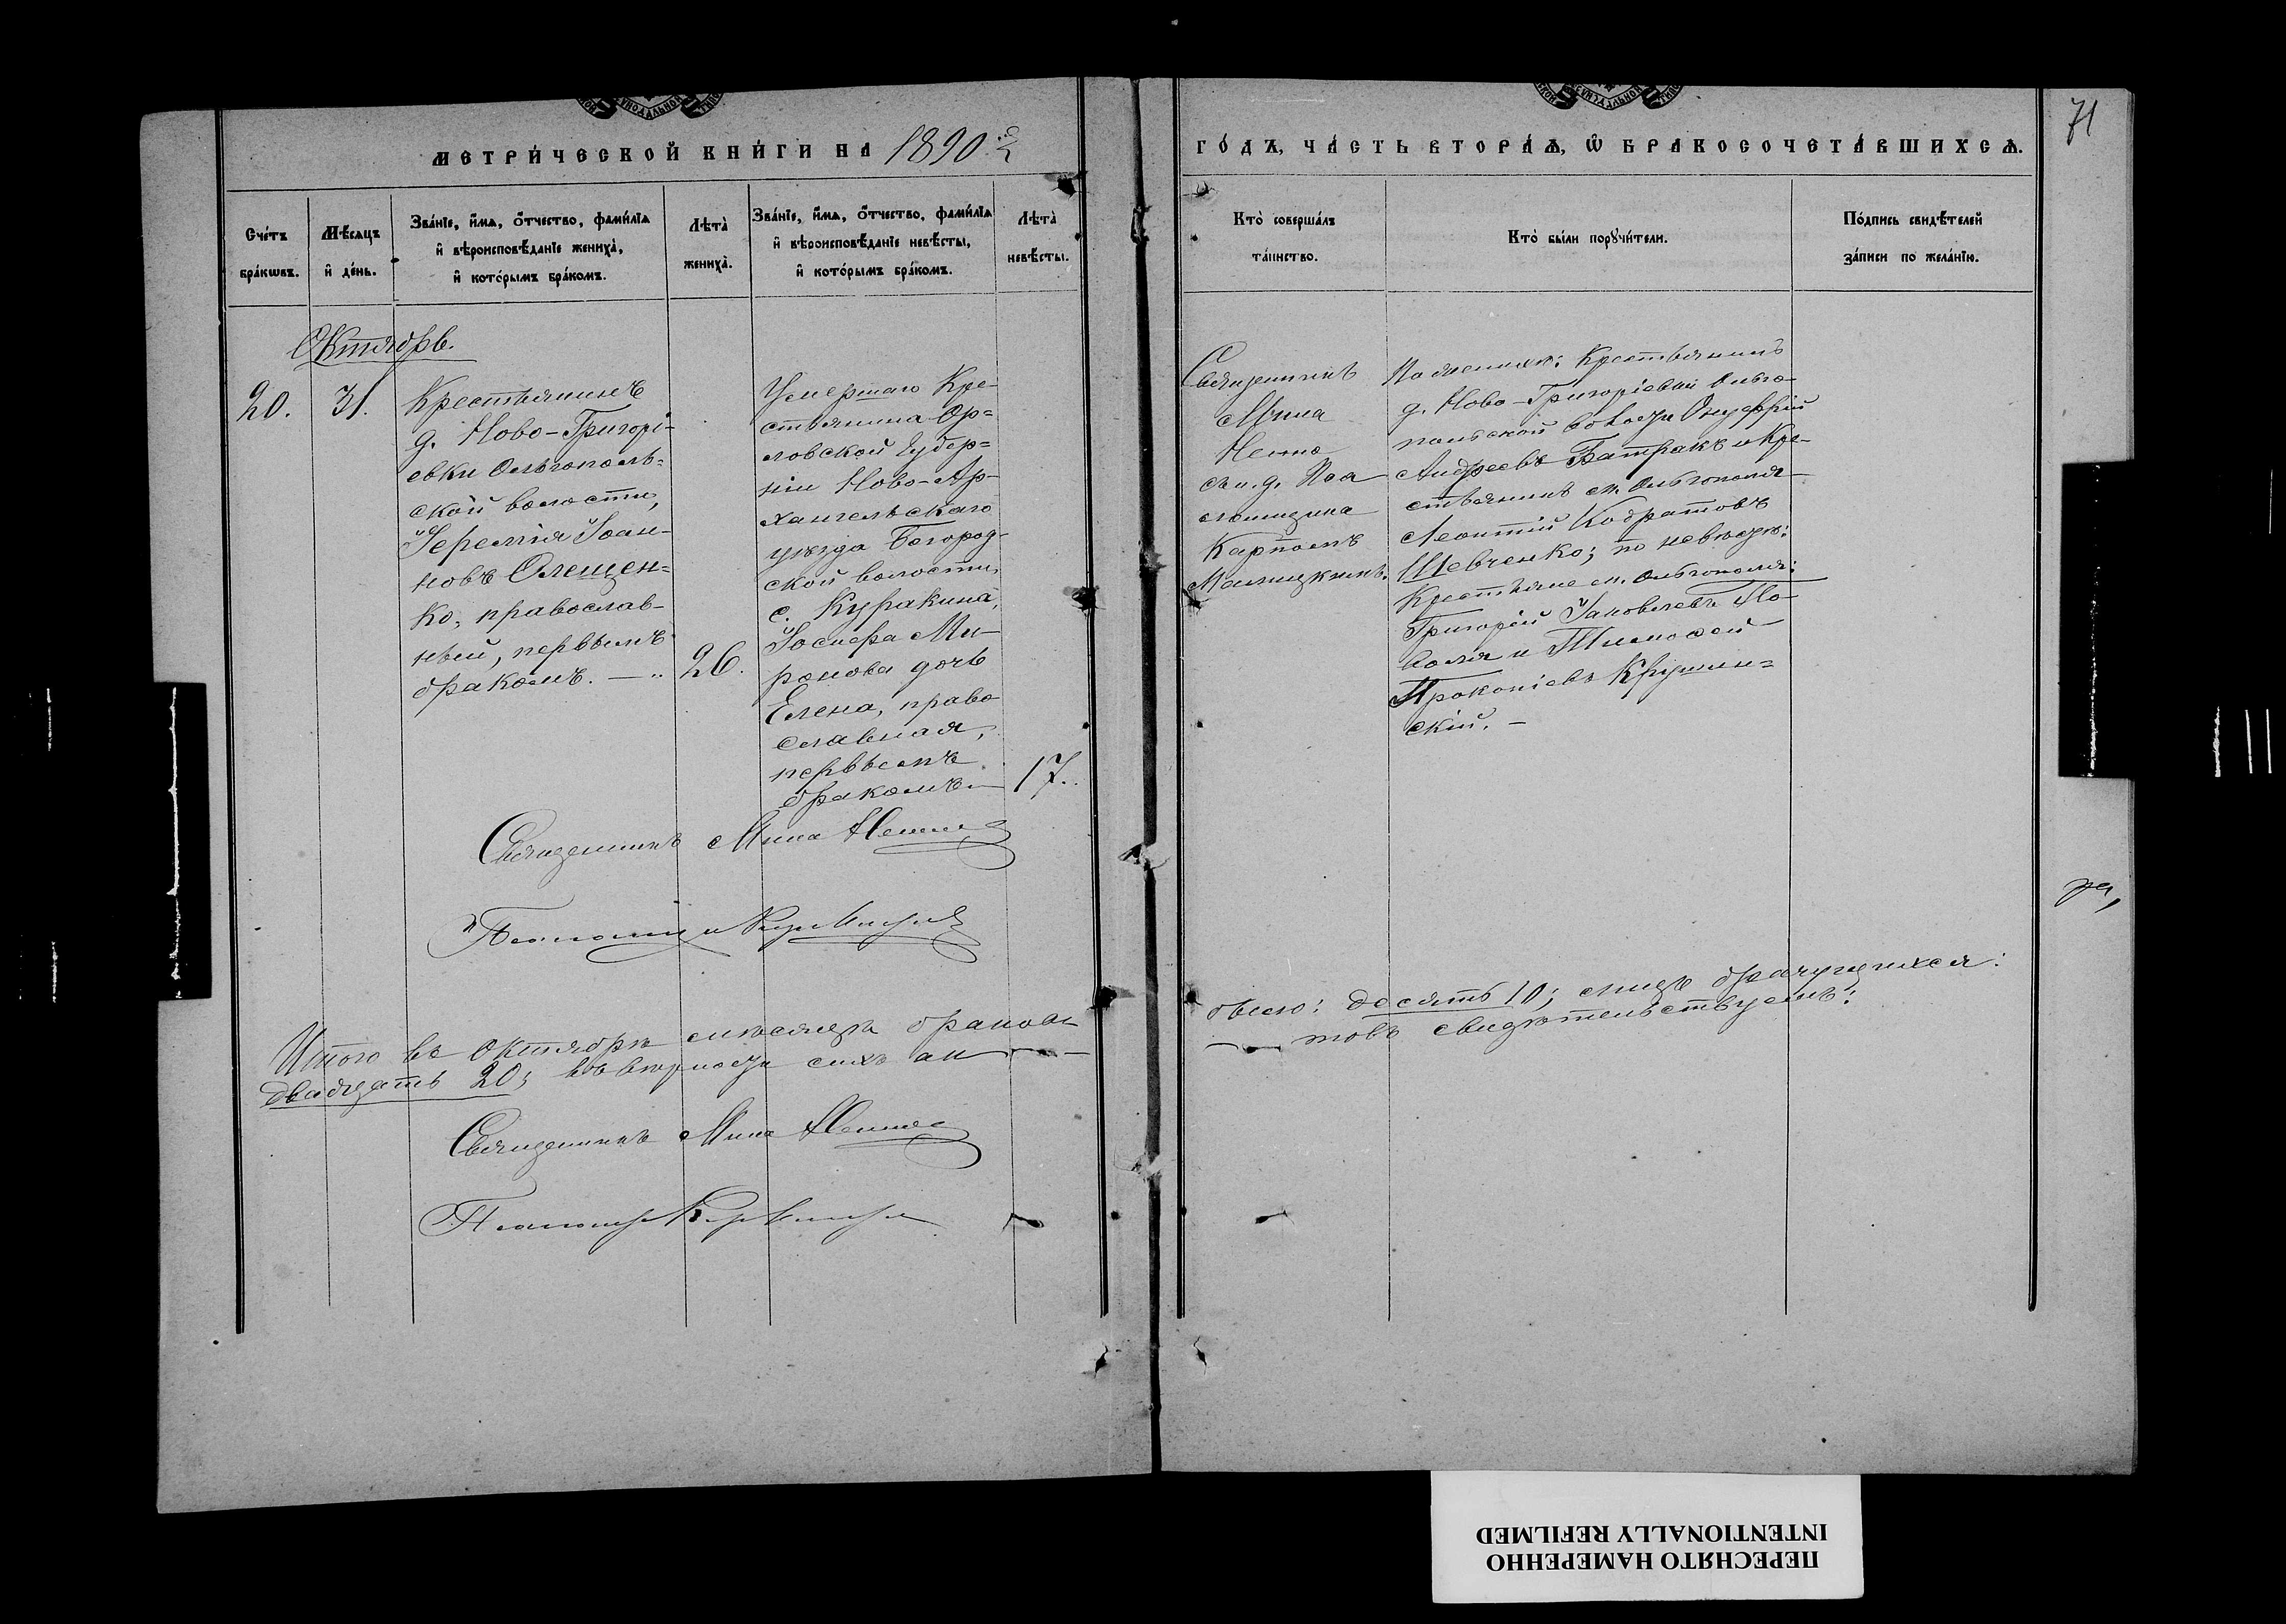 МЕТРИ́ЧЕСКОЙ КНИ́ГИ НА 1890 г.
ГО́ДЪ, ЧА́СТЬ ВТОРА́Я, Ѡ БРАКОСОЧЕТА́ВШИХСЯ.
71
Сче́тъ бра́кѡвъ.
Мѣ́сяцъ и де́нь.
Зва́нїе, и́мя, о́тчество, фами́лїа
и вѣроисповѣ́данїе жениха̀,
и кото́рымъ бра́комъ.
Лѣта̀ жениха̀.
Зва́нїе, и́мя, о́тчество, фами́лїа
и вѣроисповѣ́данїе невѣ́сты,
и кото́рымъ бра́комъ.
Лѣта̀ невѣ́сты.
Кто̀ соверша́лъ
та́инство.
Кто̀ бы́ли порꙋчи́тели.
По́дпись свидѣ́телей
за́писи по жела́нїю.
Октябрь.
20.
31.
Крестьянинъ
д. Ново-Григорі-
евки Ольгополь=
ской волости,
Іеремія Іоан-
новъ Олещен=
ко, православ-
ный, первымъ
бракомъ. —
26.
Умершаго Кре-
стьянина Ор=
ловской Губер=
ніи Ново-Ар-
хангельскаго
уѣзда Богород-
ской волости,
с. Куракина,
Іосифа Ми-
ронова дочь
Елена, право
славная,
первымъ
бракомъ —
17.
Священникъ
Мина
съ и. д. Пса
ломщика
Карпомъ
По женихѣ: Крестьянинъ
д. Ново-Григоріевки Ольго-
польской волости Онуфрій
Андреевъ Батракъ и Кре-
стьянинъ м. Ольгополя
Леонтій Кодратовъ
Шевченко; по невѣстѣ:
Крестьяне м. Ольгополя:
Григорій Іаковлевъ По-
воля и Тимофей
Прокопіевъ Крушин=
скій. —
Священникъ Мина
Итого въ Октябрѣ мѣсяцѣ браковъ
было: десять 10; лицъ брачущихся:
двадцать 20; въ вѣрности сихъ ак—
— товъ свидѣтельствуемъ:
Священникъ Мина
ПЕРЕСНЯТО НАМЕРЕННО
INTENTIONALLY REFILMED